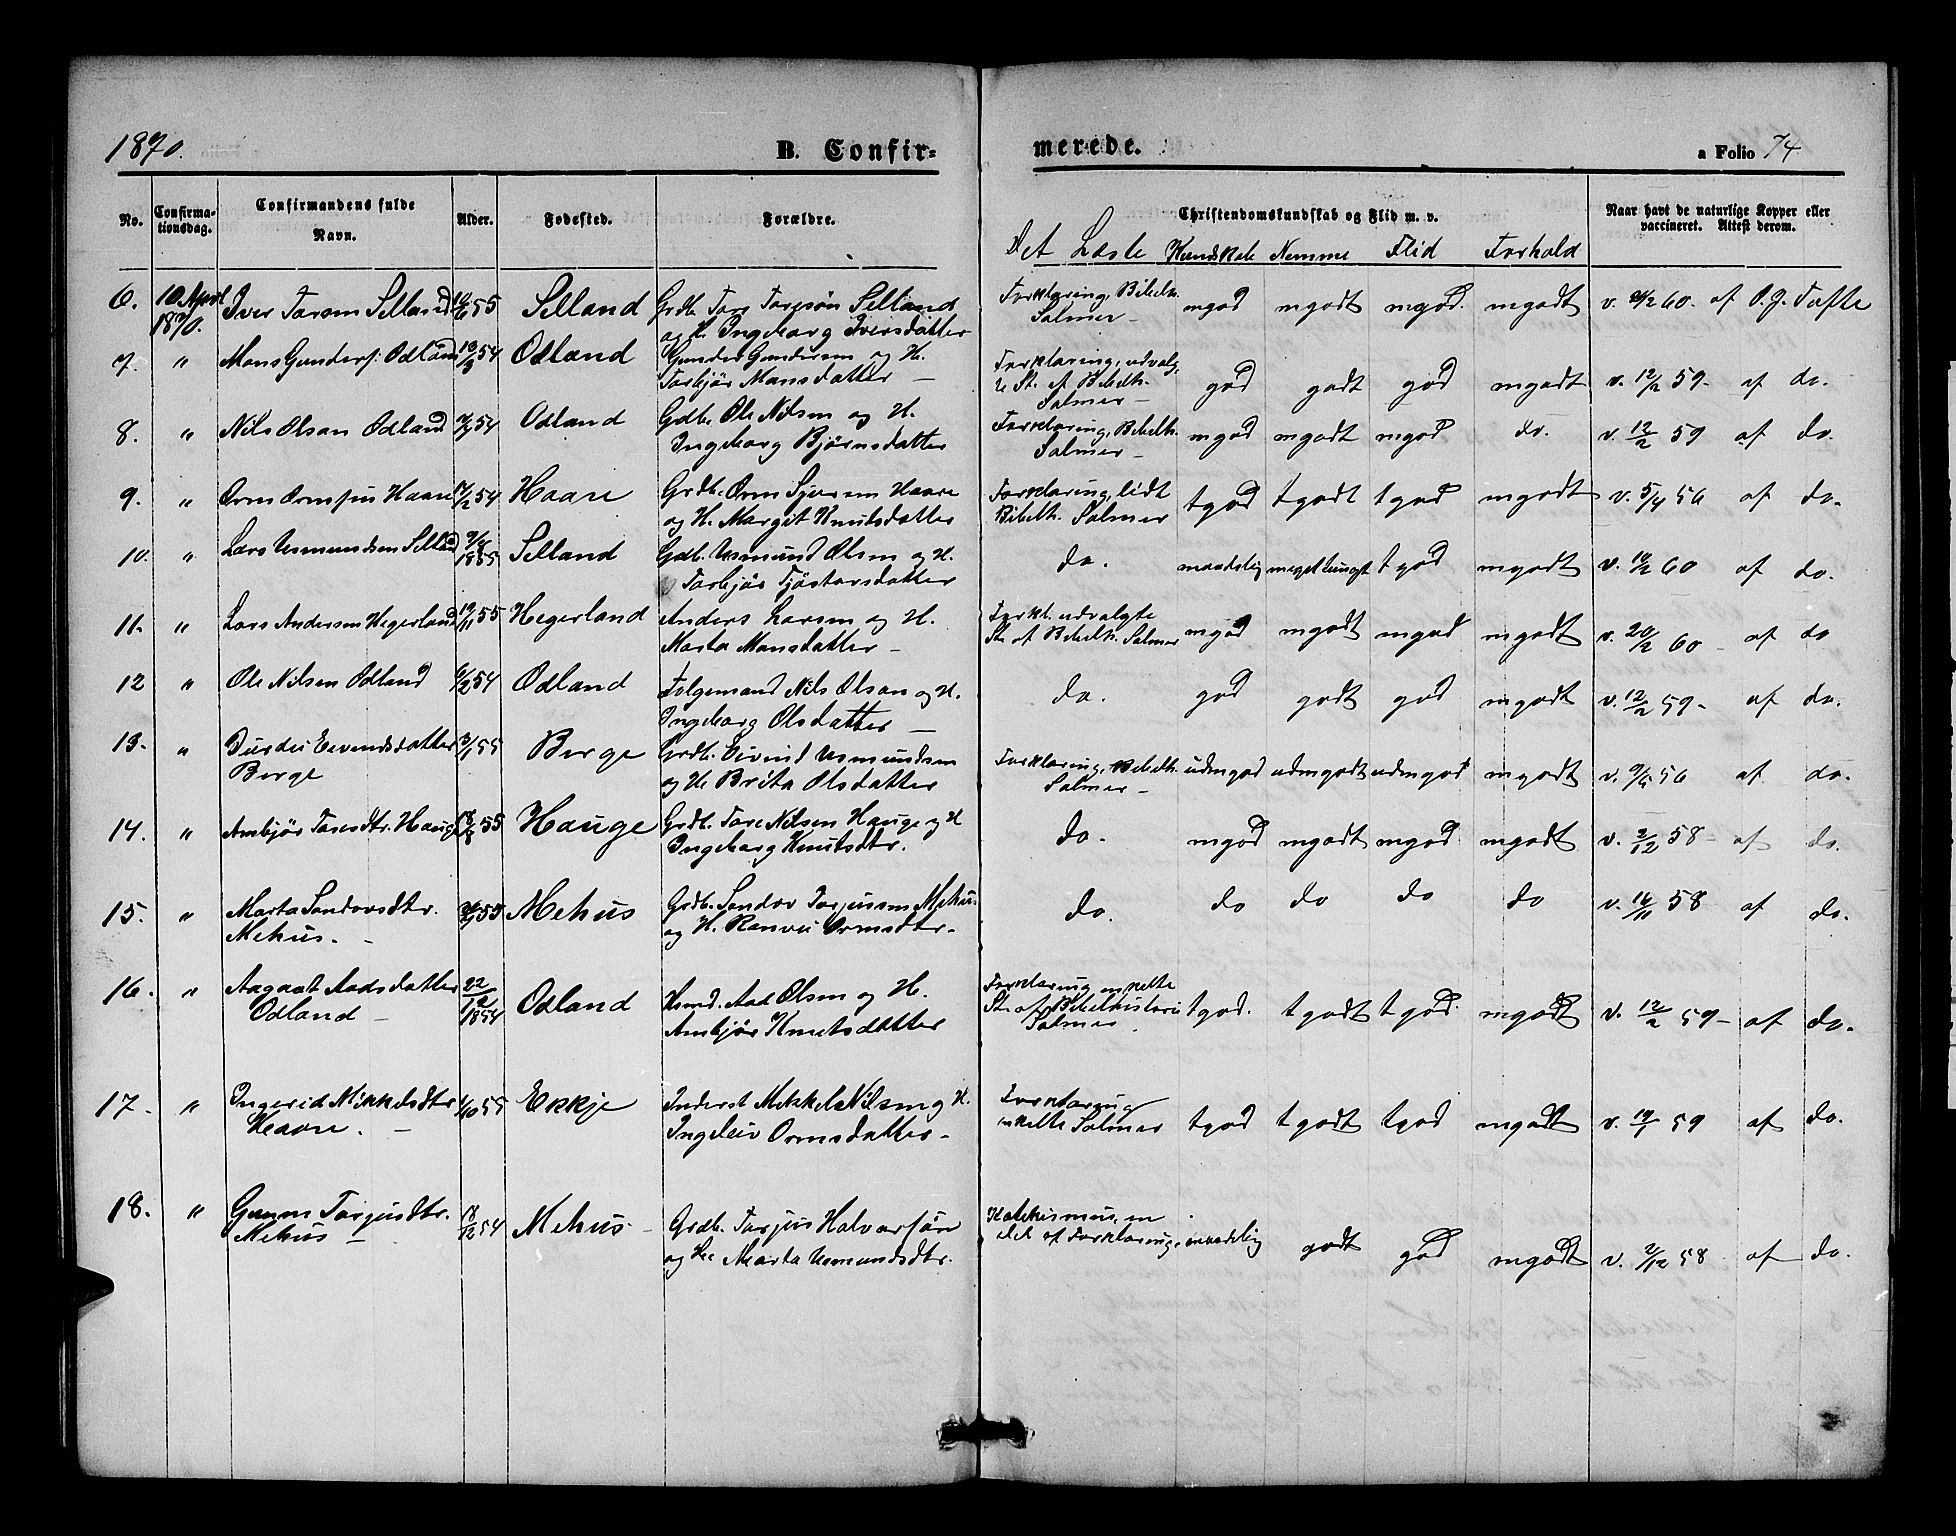 1870.
B. Confir-
merede.
a Folio 74.
No.
Confirma-
tionsdag.
Confirmandens fulde
Navn.
Alder.
Fødested.
Forældre.
Christendomskundskab og Flid m. v.
Det Læste Kundskab Nemme Flid Forhold
Naar havt de naturlige Kopper eller
vaccineret. Attest derom.
6. 10 April Iver Torsen Selland 55 Selland Grdb. Tore Toresøn Selland
1870. og H. Ingeborg Iversdatter
Forklaring, Bibelh.
Salmer – mgod mgodt mgod. mgodt v. 60. af O. J. Tofte
7. " Mons Gunders. Odland 54 Odland Gunder Gundersen og H.
Torbjør Monsdatter –
Forklaring, udvalg,
te St. af Bibelh.
Salmer – god godt god mgodt v. 12/2 59 – af do.
8. " Nils Olson Odland 54 Odland Gdb. Ole Nilsen og H.
Ingeborg Bjørnsdatter
Forklaring, Bibelh.
Salmer – mgod mgodt mgod do. v. 12/2 59 af do.
9. " Orm Ormsen Haare 54 Haare Grdb. Orm Sjursen Haare
og H. Margit Knutsdatter
Forklaring, lidt
Bibelh. Salmer tgod tgodt tgod mgodt v. 5/4 56 af do.
10. " Lars Asmundsen Selland 1855 Selland Gdb. Asmund Olsen og H.
Torbjør Tjøstorsdatter
do. maadelig meget tungt tgod mgodt v. 60 af do.
11. " Lars Andersen Hegerland 19/11 55 Hegerland Anders Larsen og H.
Marta Monsdatter –
Forkl. udvalgte
St. af Bibelh. Salmer mgod mgodt mgod mgodt v. 20/2 60 – af do
12 " Ole Nilsen Odland 6/2 54 Odland Folgemand Nils Olson og H.
Ingeborg Olsdatter –
do. god godt god mgodt v. 12/2 59 – af do.
13. " Eivindsdatter 55 Berge Grdb. Eivind Asmundsen
Berge og H. Brita Olsdatter
Forklaring, Bibelh.
Salmer – udmgod udmgodt udmgod mgodt v. 56 af do.
14. " Anbjør Toresdtr. Hauge 55 Hauge Grdb. Tore Nilsen Hauge og H
Ingeborg Knutsdtr.
do. mgod mgodt mgod mgodt v. 2/12 58 – af do.
15. " Marta Sondovsdtr. 55 Mehus Grdb. Sondov Torjussen Mehus
Mehus. – og H. Ranvei Ormsdtr. –
do. do do do do v. 16/11 58 af do.
16. " Aagaat Aadsdatter 22/12 1854 Odland Hmd. Aad Olsen og H.
Odland – Anbjør Knutsdatter
Forklaring enkelte
St. af Bibelhistorie
Salmer tgod. tgodt tgod. mgodt v. 12/2 59 – af do.
17. " Ingerid Mikkelsdtr 55 Ekkje Inderst Mikkel Nilsen og H.
Haare. – Ingeleiv Ormsdatter –
Forklaring
enkelte Salmer tgod tgodt tgod mgodt v. 59 af do.
18. " Gunn Torjusdtr. 18/12 54 Mehus – Grdb. Torjus Halvorsøn
Mehus – og H. Marta Asmundsdtr.
Katekismus, en
del af Forklaring, maadelig godt god mgodt v. 2/12 58 af do.